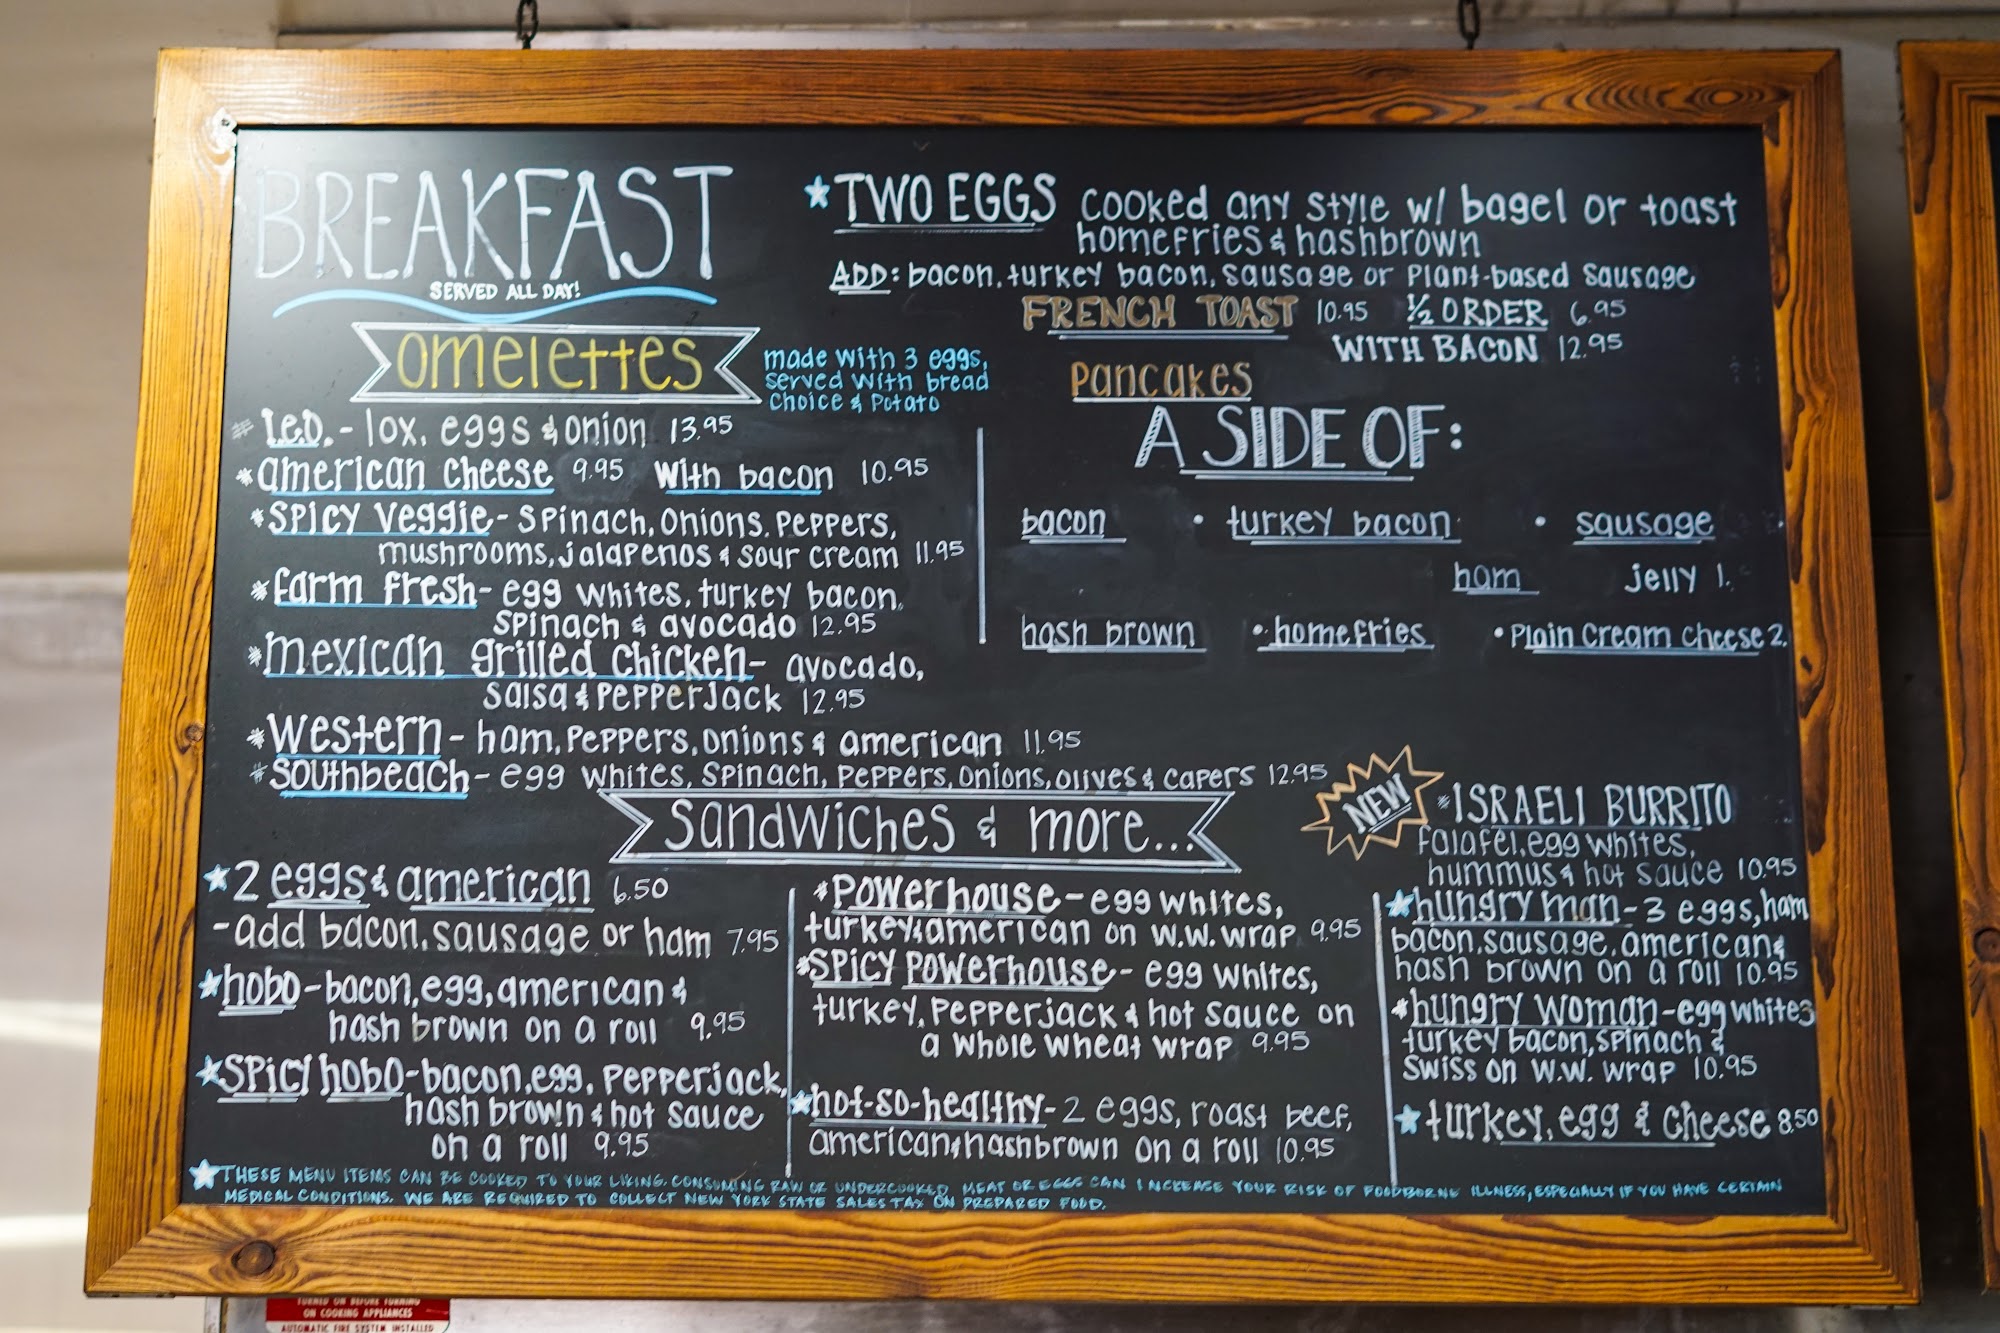 BREAKFAST
SERVED ALL DAY!
omelettes
made with 3 eggs,
served with bread
choice & potato
* L.E.O. - lox, eggs & onion 13.95
* american cheese 9.95 with bacon 10.95
* spicy veggie - spinach, onions, peppers,
mushrooms, jalapenos & sour cream 11.95
* farm fresh - egg whites, turkey bacon,
spinach & avocado 12.95
* mexican grilled chicken - avocado,
salsa & pepperjack 12.95
* western - ham, peppers, onions & american 11.95
* southbeach - egg whites, spinach, peppers, onions, olives & capers 12.95
★ TWO EGGS cooked any style w/ bagel or toast
homefries & hashbrown
ADD: bacon, turkey bacon, sausage or plant-based sausage
FRENCH TOAST 10.95 ½ ORDER 6.95
WITH BACON 12.95
pancakes
A SIDE OF:
bacon • turkey bacon • sausage
ham jelly 1.
hash brown • homefries • plain cream cheese 2.
sandwiches & more...
★ 2 eggs & american 6.50
- add bacon, sausage or ham 7.95
★ hobo - bacon, egg, american &
hash brown on a roll 9.95
★ spicy hobo - bacon, egg, pepperjack,
hash brown & hot sauce
on a roll 9.95
* powerhouse - egg whites,
turkey & american on w.w. wrap 9.95
* spicy powerhouse - egg whites,
turkey, pepperjack & hot sauce on
a whole wheat wrap 9.95
★ hot-so-healthy - 2 eggs, roast beef,
american & hashbrown on a roll 10.95
NEW
* ISRAELI BURRITO
falafel, egg whites,
hummus & hot sauce 10.95
★ hungry man - 3 eggs, ham
bacon, sausage, american &
hash brown on a roll 10.95
* hungry woman - egg whites
turkey bacon, spinach &
swiss on w.w. wrap 10.95
★ turkey, egg & cheese 8.50
★ THESE MENU ITEMS CAN BE COOKED TO YOUR LIKING. CONSUMING RAW OR UNDERCOOKED MEAT OR EGGS CAN INCREASE YOUR RISK OF FOODBORNE ILLNESS, ESPECIALLY IF YOU HAVE CERTAIN
MEDICAL CONDITIONS. WE ARE REQUIRED TO COLLECT NEW YORK STATE SALES TAX ON PREPARED FOOD.
TURNED ON BEFORE TURNING
ON COOKING APPLIANCES
AUTOMATIC FIRE SYSTEM INSTALLED